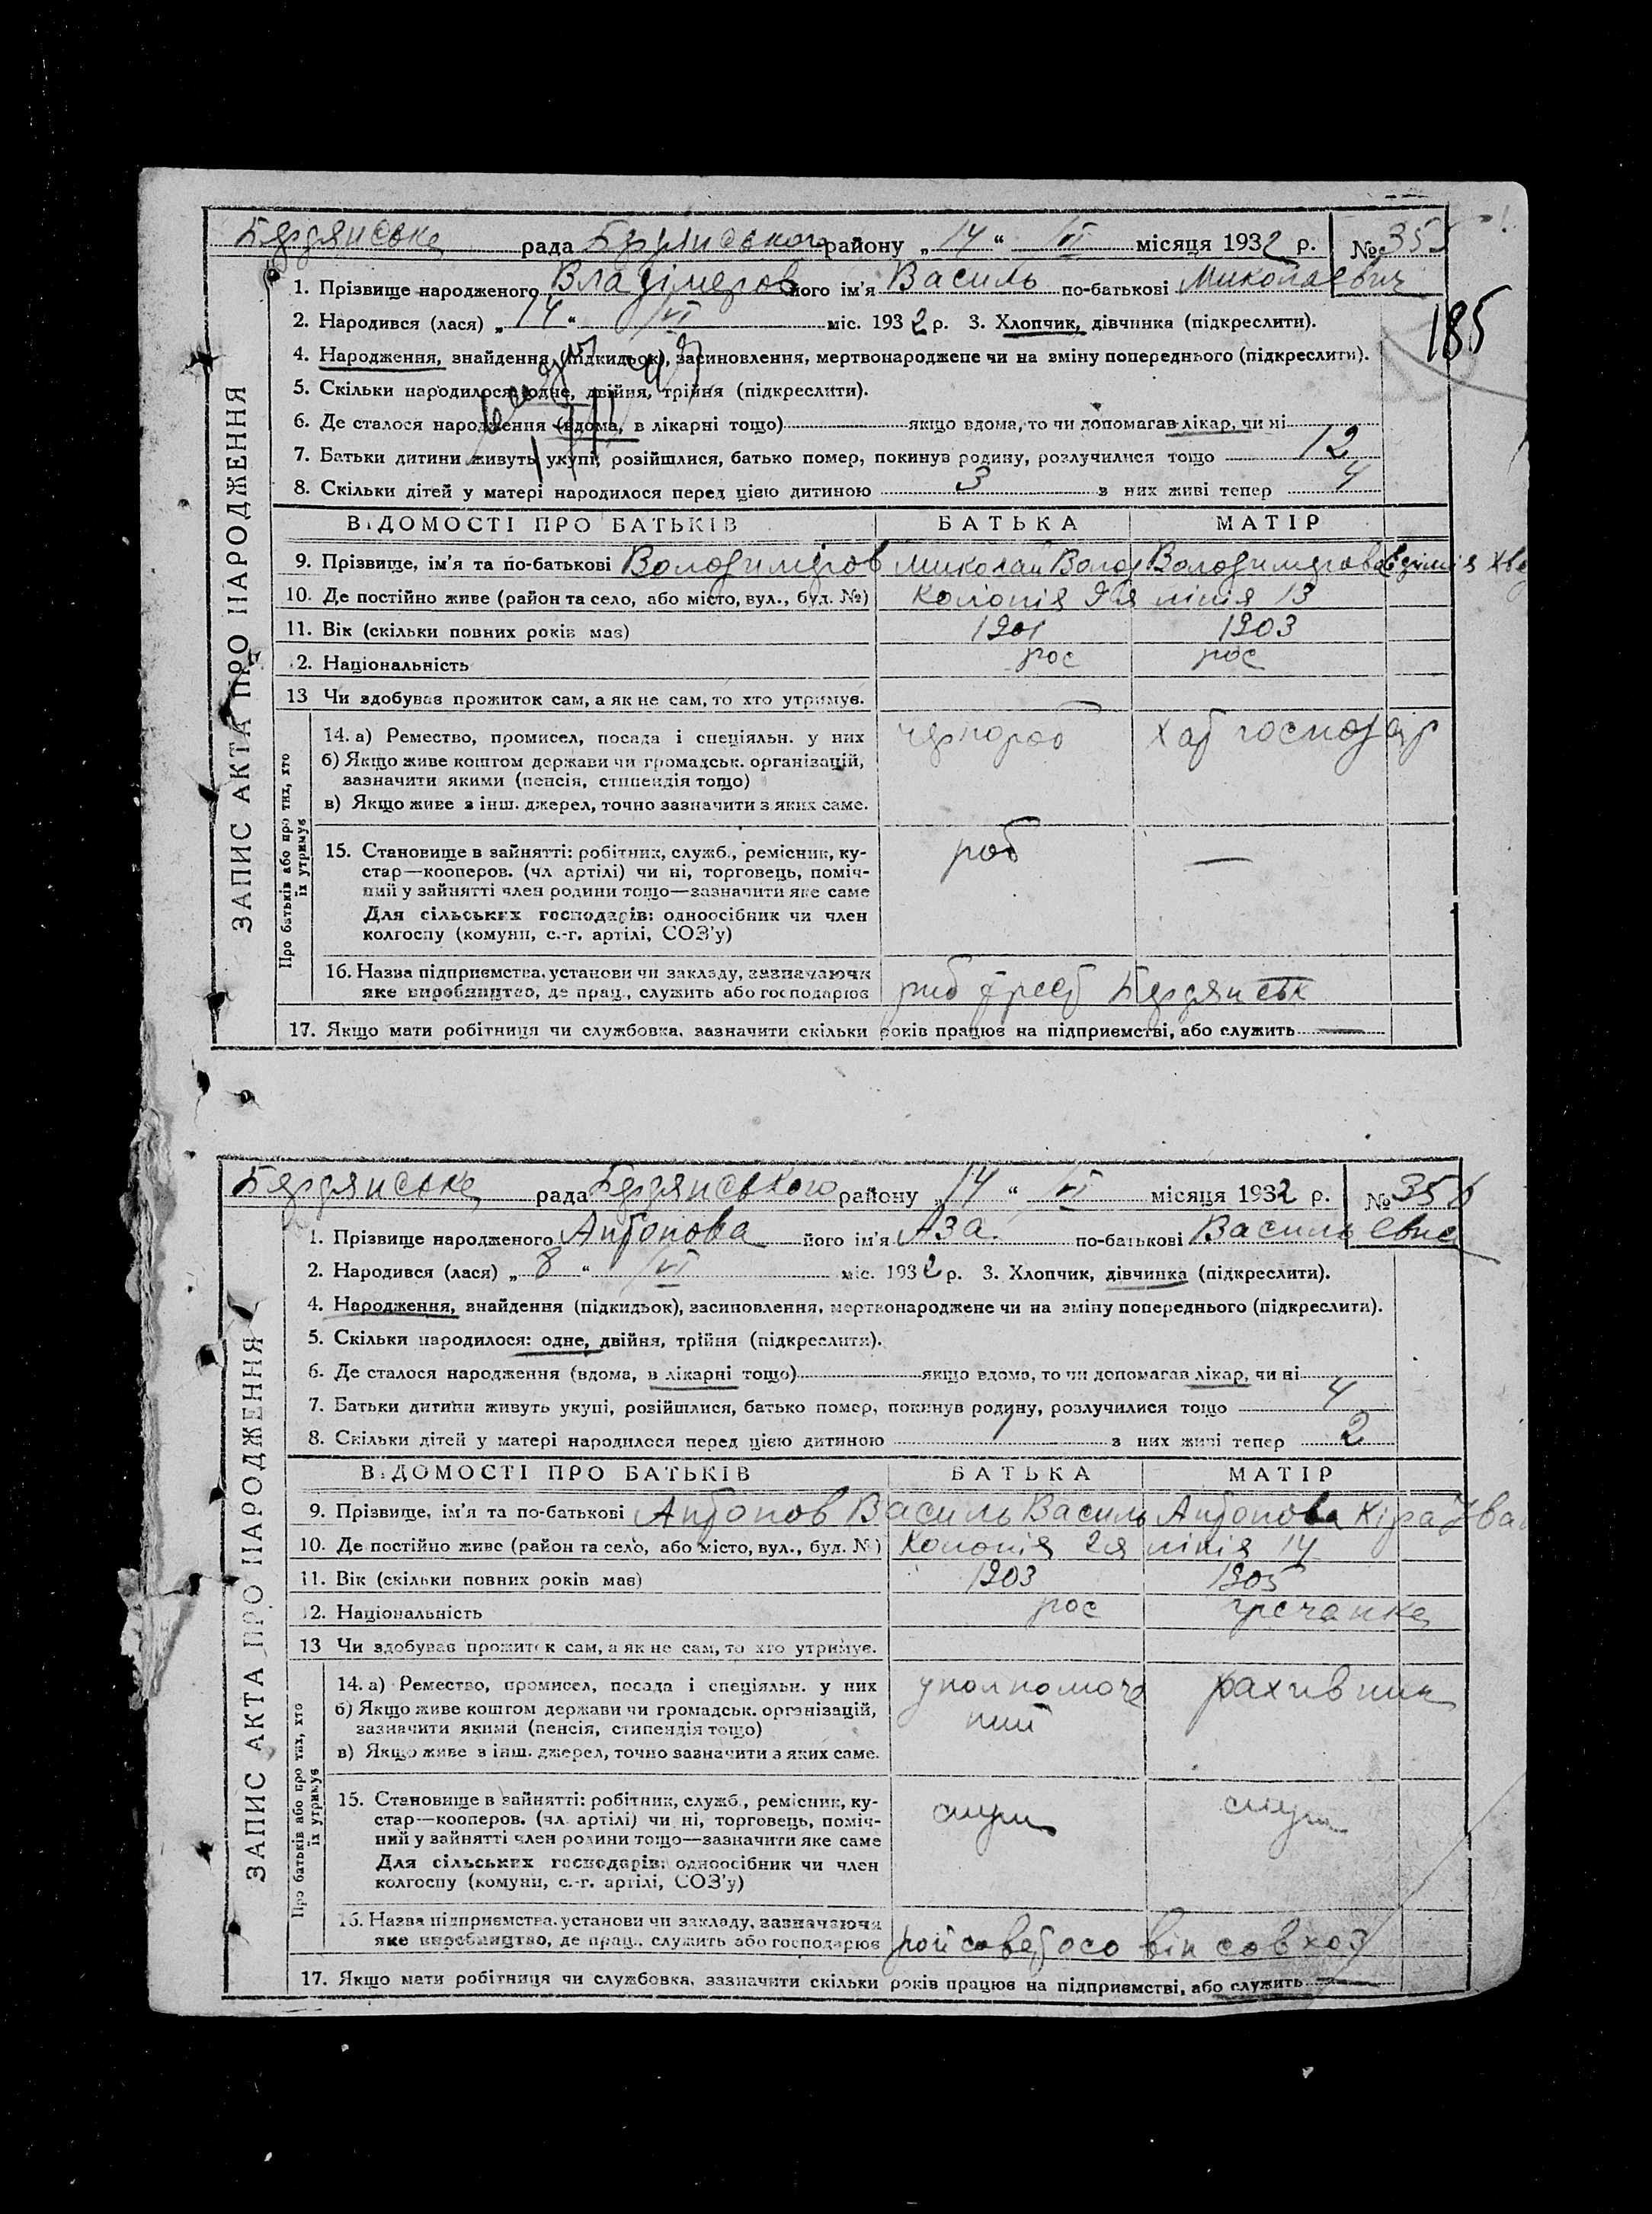 Бердянська рада Бердянського району „14“ VI місяця 1932 р. № 355
1. Прізвище народженого Владімеров його ім'я Василь по-батькові Миколаєвич
185
2. Народився (лася) „14“ VI міс. 1932 р. 3. Хлопчик, дівчинка (підкреслити).
4. Народження, знайдення (підкидьок), засиновлення, мертвонароджене чи на зміну попереднього (підкреслити).
5. Скільки народилося: одне, двійня, трійня (підкреслити).
6. Де сталося народження (вдома, в лікарні тощо) якщо вдома, то чи допомагав лікар, чи ні
7. Батьки дитини живуть укупі, розійшлися, батько помер, покинув родину, розлучилися тощо 12
8. Скільки дітей у матері народилося перед цією дитиною 3 з них живі тепер 4
ЗАПИС АКТА ПРО НАРОДЖЕННЯ
ВІДОМОСТІ ПРО БАТЬКІВ БАТЬКА МАТІР
9. Прізвище, ім'я та по-батькові Володиміров Миколай Волод Володимирова
10. Де постійно живе (район та село, або місто, вул., буд. №) Колонія 9я лінія 13
11. Вік (скільки повних років має) 1901 1903
12. Національність рос рос
13 Чи здобував прожиток сам, а як не сам, то хто утримує.
Про батьків або про тих, хто їх утримує
14. а) Ремество, промисел, посада і спеціяльн. у них чернороб хат господар
б) Якщо живе коштом держави чи громадськ. організацій,
зазначити якими (пенсія, стипендія тощо)
в) Якщо живе з інш. джерел, точно зазначити з яких саме.
15. Становище в зайнятті: робітник, служб., ремісник, ку- роб —
стар—кооперов. (чл артілі) чи ні, торговець, поміч-
ний у зайнятті член родини тощо—зазначити яке саме
Для сільських господарів: одноосібник чи член
колгоспу (комуни, с.-г. артілі, СОЗ'у)
16. Назва підприємства, установи чи закладу, зазначаючи
яке виробництво, де прац., служить або господарює риб трест Бердянськ
17. Якщо мати робітниця чи службовка, зазначити скільки років працює на підприємстві, або служить —
Бердянська рада Бердянського району „14“ VI місяця 1932 р. № 356
1. Прізвище народженого Антонова його ім'я Аза. по-батькові Васильевна
2. Народився (лася) „8“ VI міс. 1932 р. 3. Хлопчик, дівчинка (підкреслити).
4. Народження, знайдення (підкидьок), засиновлення, мертвонароджене чи на зміну попереднього (підкреслити).
5. Скільки народилося: одне, двійня, трійня (підкреслити).
6. Де сталося народження (вдома, в лікарні тощо) якщо вдома, то чи допомагав лікар, чи ні
7. Батьки дитини живуть укупі, розійшлися, батько помер, покинув родину, розлучилися тощо 4
8. Скільки дітей у матері народилося перед цією дитиною 1 з них живі тепер 2
ЗАПИС АКТА ПРО НАРОДЖЕННЯ
ВІДОМОСТІ ПРО БАТЬКІВ БАТЬКА МАТІР
9. Прізвище, ім'я та по-батькові Антонов Василь Василь Антонова Кіра Іван
10. Де постійно живе (район та село, або місто, вул., буд. №) Колонія 2я лінія 14
11. Вік (скільки повних років має) 1903 1905
12. Національність рос гречанка
13 Чи здобував прожиток сам, а як не сам, то хто утримує.
Про батьків або про тих, хто їх утримує
14. а) Ремество, промисел, посада і спеціяльн. у них уполномоче рахивник
б) Якщо живе коштом держави чи громадськ. організацій, ний
зазначити якими (пенсія, стипендія тощо)
в) Якщо живе з інш. джерел, точно зазначити з яких саме.
15. Становище в зайнятті: робітник, служб., ремісник, ку- служ служ
стар—кооперов. (чл. артілі) чи ні, торговець, поміч-
ний у зайнятті член родини тощо—зазначити яке саме
Для сільських господарів: одноосібник чи член
колгоспу (комуни, с.-г. артілі, СОЗ'у)
16. Назва підприємства, установи чи закладу, зазначаючи
яке виробництво, де прац., служить або господарює совхоз
17. Якщо мати робітниця чи службовка, зазначити скільки років працює на підприємстві, або служить —